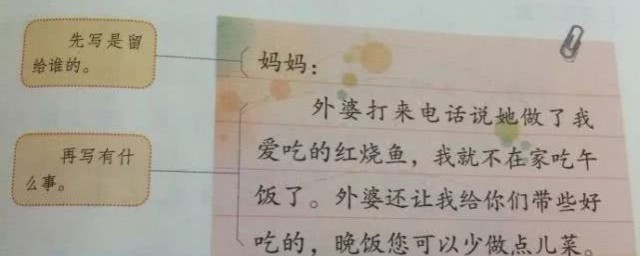 先写是留
给谁的。
妈妈：
外婆打来电话说她做了我
爱吃的红烧鱼，我就不在家吃午
饭了。外婆还让我给你们带些好
吃的，晚饭您可以少做点儿菜。
再写有什
么事。